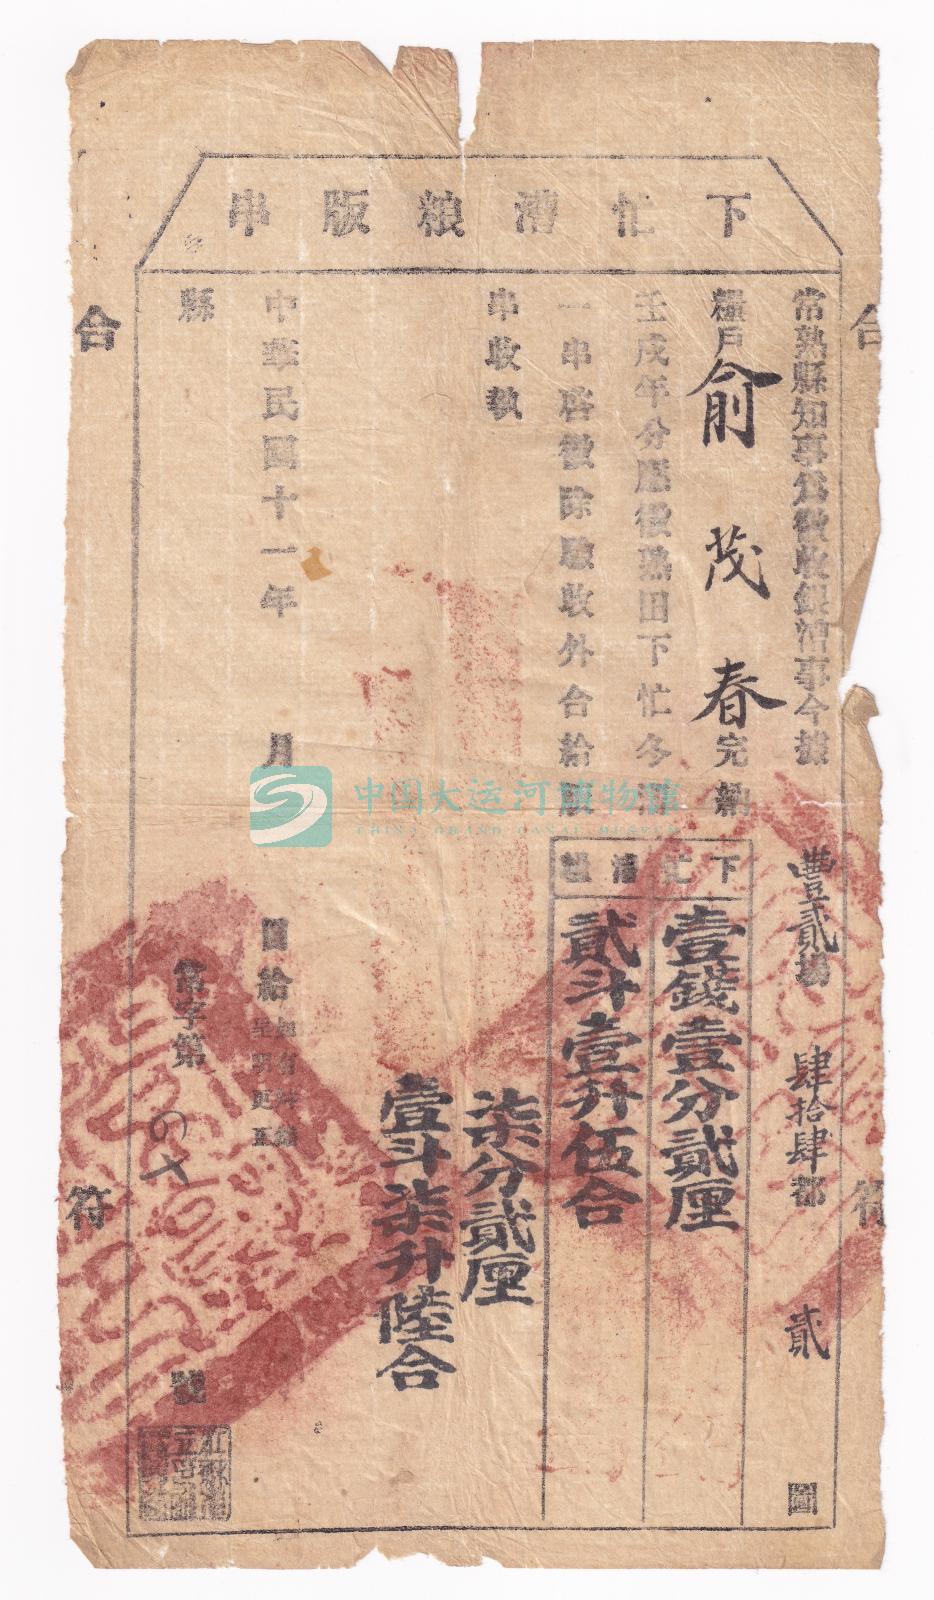 下忙漕粮版串
常熟縣知事為徵收銀漕事今據
豐貳塲 肆拾肆都 貳 圖
糧戶俞茂春完納
壬戌年分應徵熟田下忙冬
一串啓徵除驗收外合給版
串收執
下忙漕糧
壹錢壹分貳厘
貳斗壹升伍合
柒分貳厘
壹斗柒升陸合
中華民國十一年 月
圖給
呈明更正
縣
常字第 號
合
符
合
符
中国大运河博物馆
CHINA GRAND CANAL MUSEUM